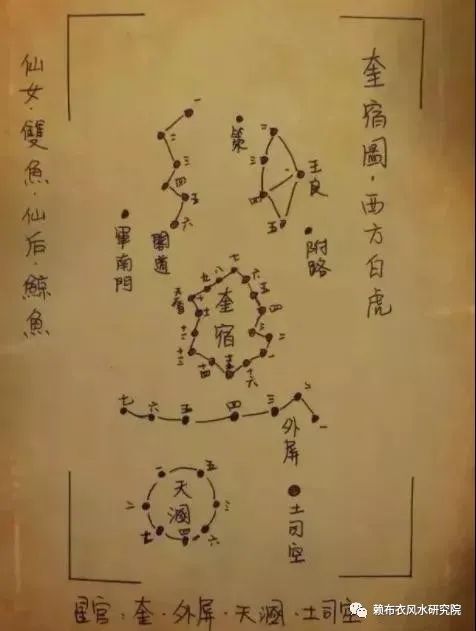 奎宿圖·西方白虎
仙女·雙魚·仙后·鯨魚
一
二
三
四
五
六
閣道
軍南門
策
王良
一
二
三
四
五
附路
奎宿
一
二
三
四
五
六
七
八
九
十
十一
十二
十三
十四
十五
十六
七
六
五
四
三
二
一
外屏
天溷
一
二
三
四
五
六
七
土司空
星官：奎·外屏·天溷·土司空
赖布衣风水研究院